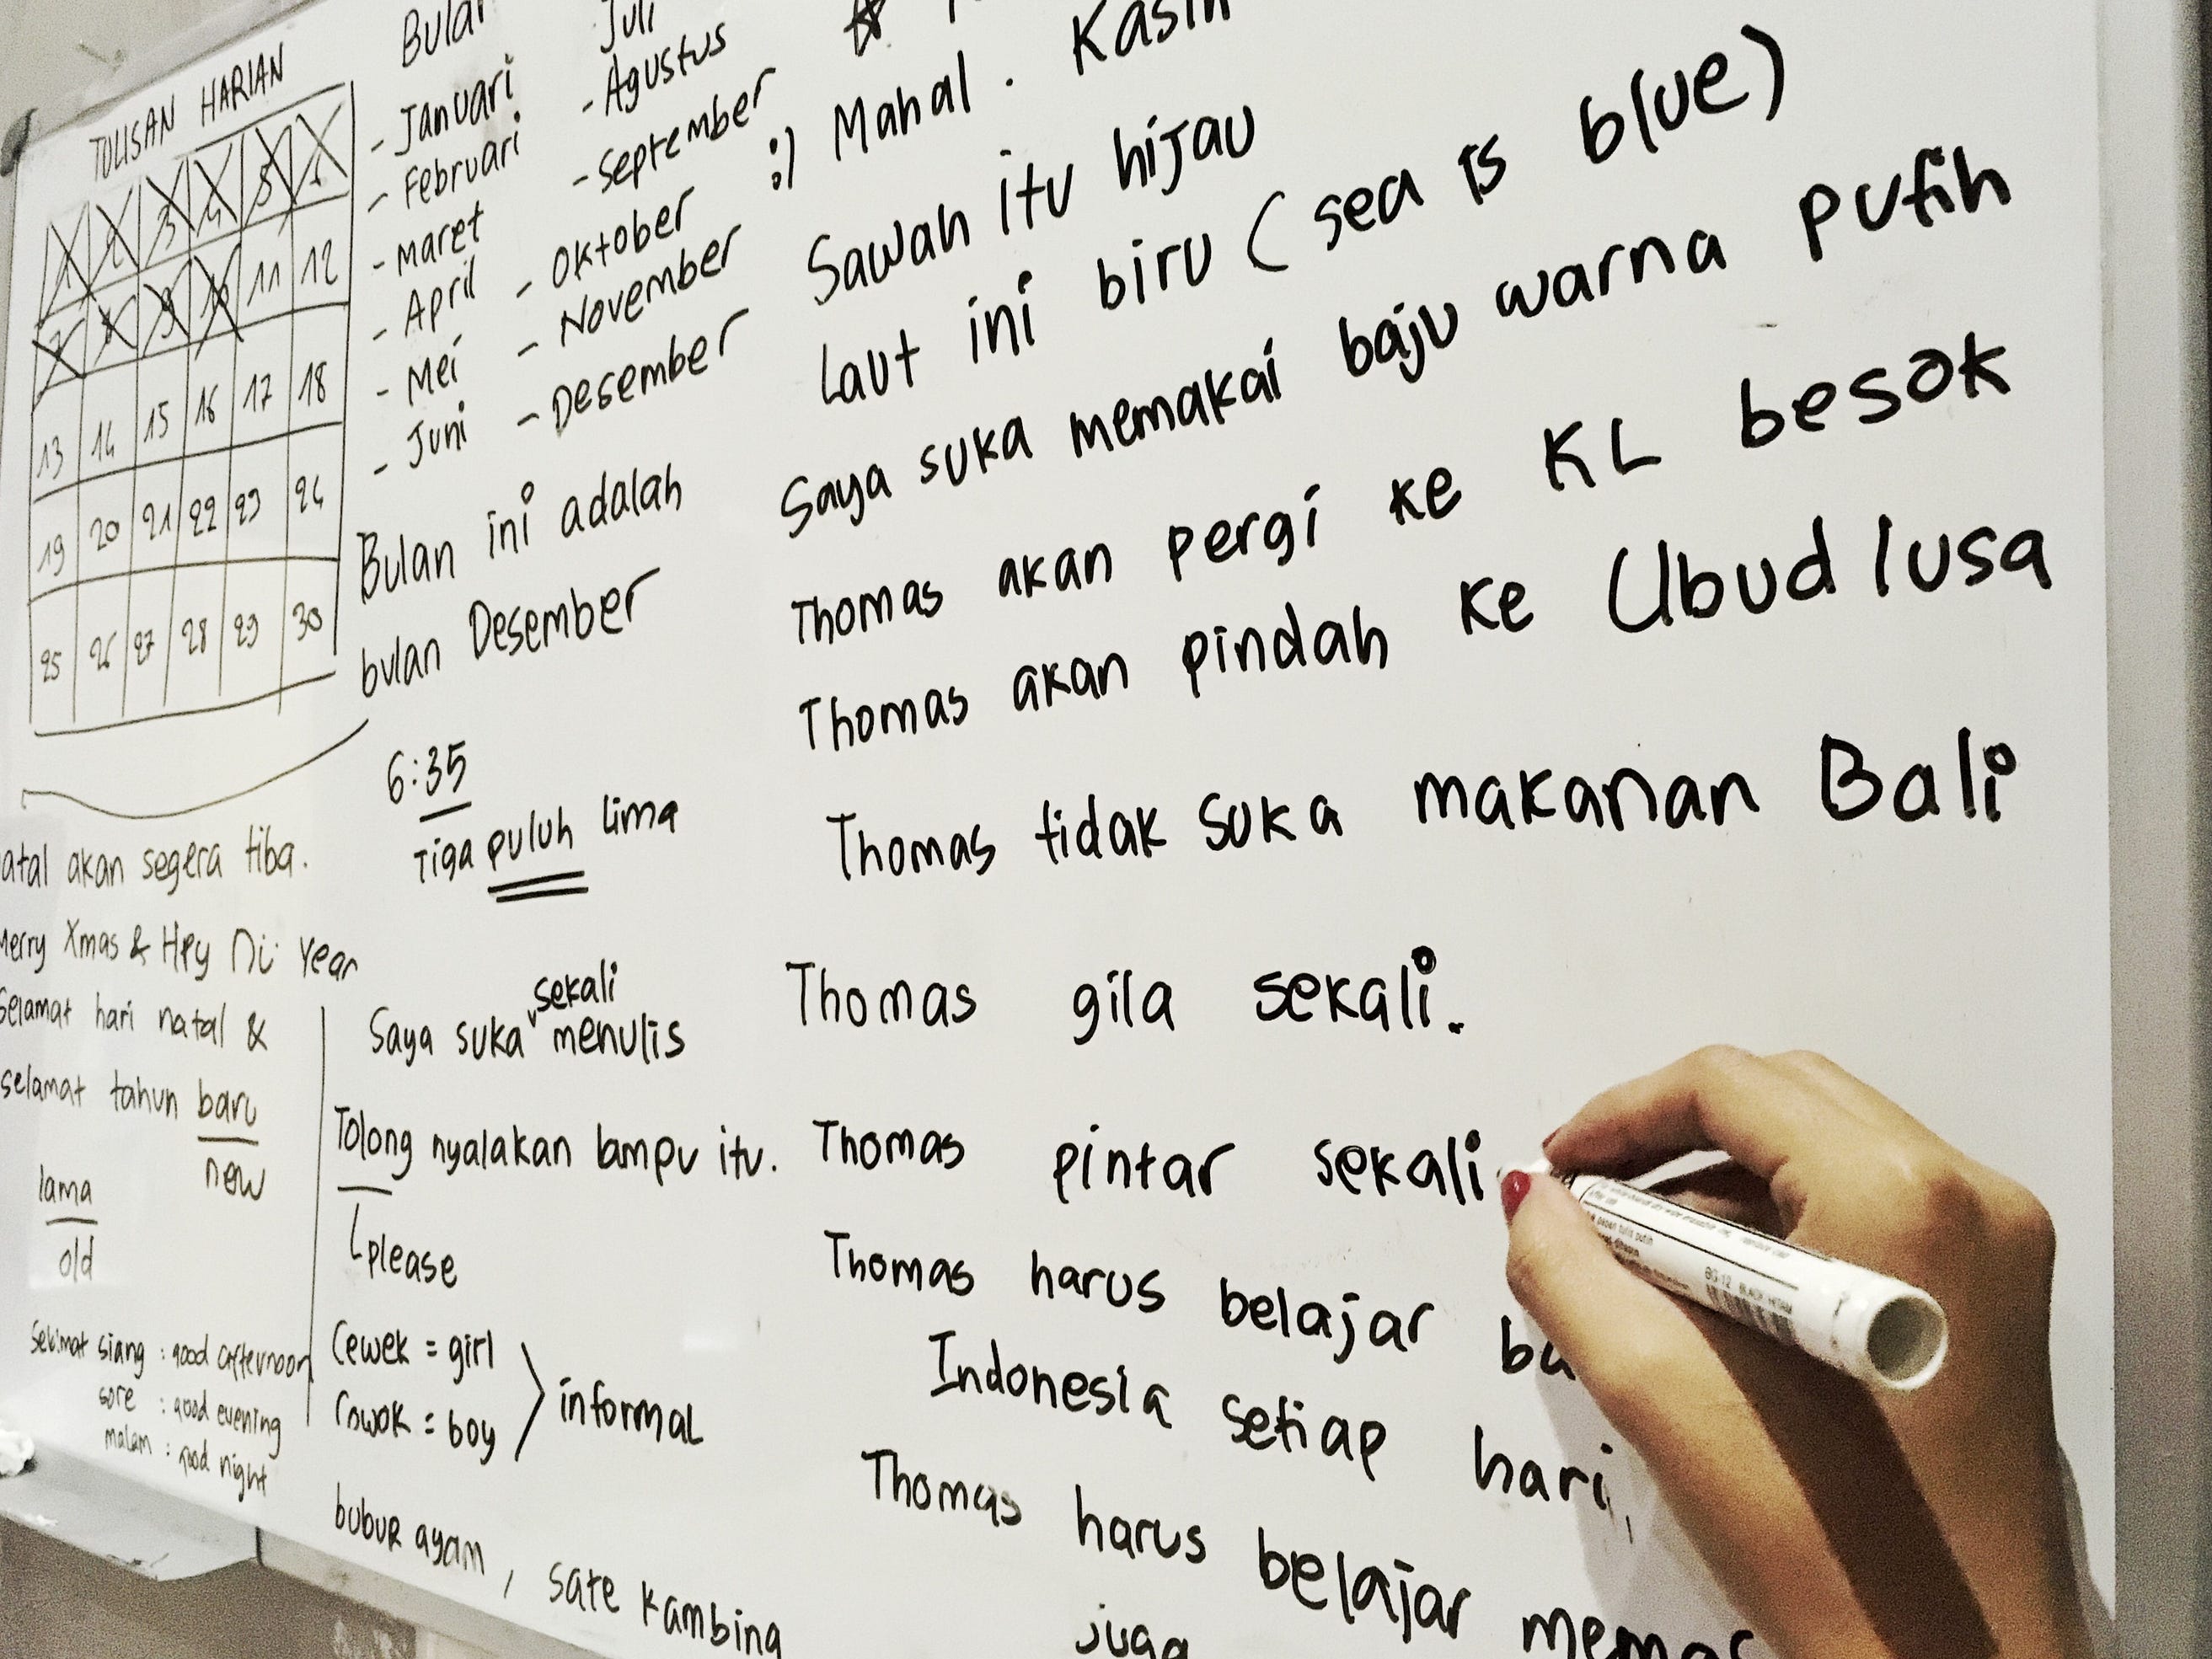 TULISAN HARIAN
1 2 3 4 5 6
7 8 9 10 11 12
13 14 15 16 17 18
19 20 21 22 23 24
25 26 27 28 29 30
atal akan segera tiba.
Merry Xmas & Hpy Ni Year
Selamat hari natal &
selamat tahun baru
new
lama
old
Selamat siang : good afternoon
sore : good evening
malam : good night
Bulan
- Januari
- Februari
- Maret
- April
- Mei
- Juni
Juli
- Agustus
- September
- Oktober
- November
- Desember
Bulan ini adalah
bulan Desember
6:35
Tiga puluh lima
sekali
Saya suka menulis
Tolong nyalakan lampu itu.
please
Cewek = girl
Cowok = boy
informal
bubur ayam, sate kambing
:) Mahal. Kasih
Sawah itu hijau
Laut ini biru (sea is blue)
Saya suka memakai baju warna putih
Thomas akan pergi ke KL besok
Thomas akan pindah ke Ubud lusa
Thomas tidak suka makanan Bali
Thomas gila sekali.
Thomas pintar sekali
Thomas harus belajar ba
Indonesia setiap hari,
Thomas harus belajar memas
juga
BG-12 BLACK HITAM